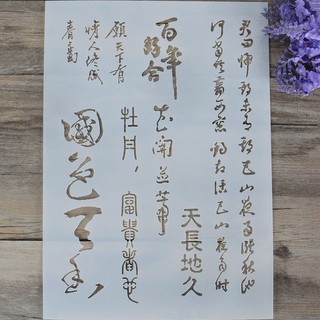 君问归期未有期巴山夜雨涨秋池
何当共剪西窗烛却话巴山夜雨时
天長地久
百年好合
花開並蒂
牡丹，富貴者也
願天下有
情人終成
眷屬
國色天香